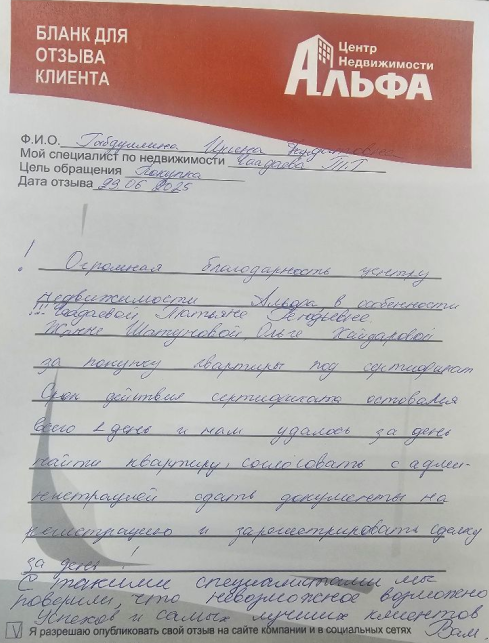 БЛАНК ДЛЯ
ОТЗЫВА
КЛИЕНТА
Центр
Недвижимости
АЛЬФА
Ф.И.О. Габдуллина Ирина
Мой специалист по недвижимости Чаадаева Т.Г
Цель обращения Покупка
Дата отзыва 29 06 2025
! Огромная благодарность центру
недвижимости Альфа в особенности
!!! Чаадаевой Татьяне
Жанне Шатуновой, Ольге Хайдаровой
за покупку квартиры под сертификат
Срок действие сертификата оставался
всего 1 день и нам удалось за день
найти квартиру, согласовать с адми-
нистрацией сдать документы на
регистрацию и зарегистрировать сделку
за день!
С такими специалистами мы
поверили, что невозможное возможно
Успехов и самых лучших клиентов
Вам
Я разрешаю опубликовать свой отзыв на сайте компании и в социальных сетях